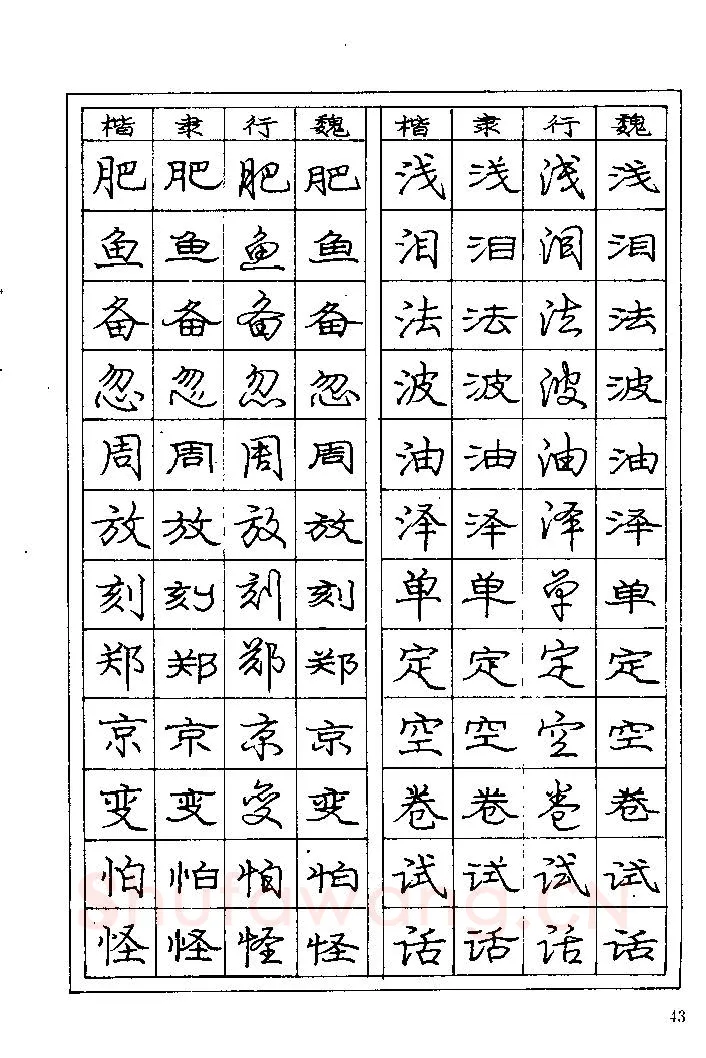 楷 隶 行 魏 楷 隶 行 魏
肥 肥 肥 肥 浅 浅 浅 浅
鱼 鱼 鱼 鱼 泪 泪 泪 泪
备 备 备 备 法 法 法 法
忽 忽 忽 忽 波 波 波 波
周 周 周 周 油 油 油 油
放 放 放 放 泽 泽 泽 泽
刻 刻 刻 刻 单 单 单 单
郑 郑 郑 郑 定 定 定 定
京 京 京 京 空 空 空 空
变 变 变 变 卷 卷 卷 卷
怕 怕 怕 怕 试 试 试 试
Shufawang.CN
怪 怪 怪 怪 话 话 话 话
43